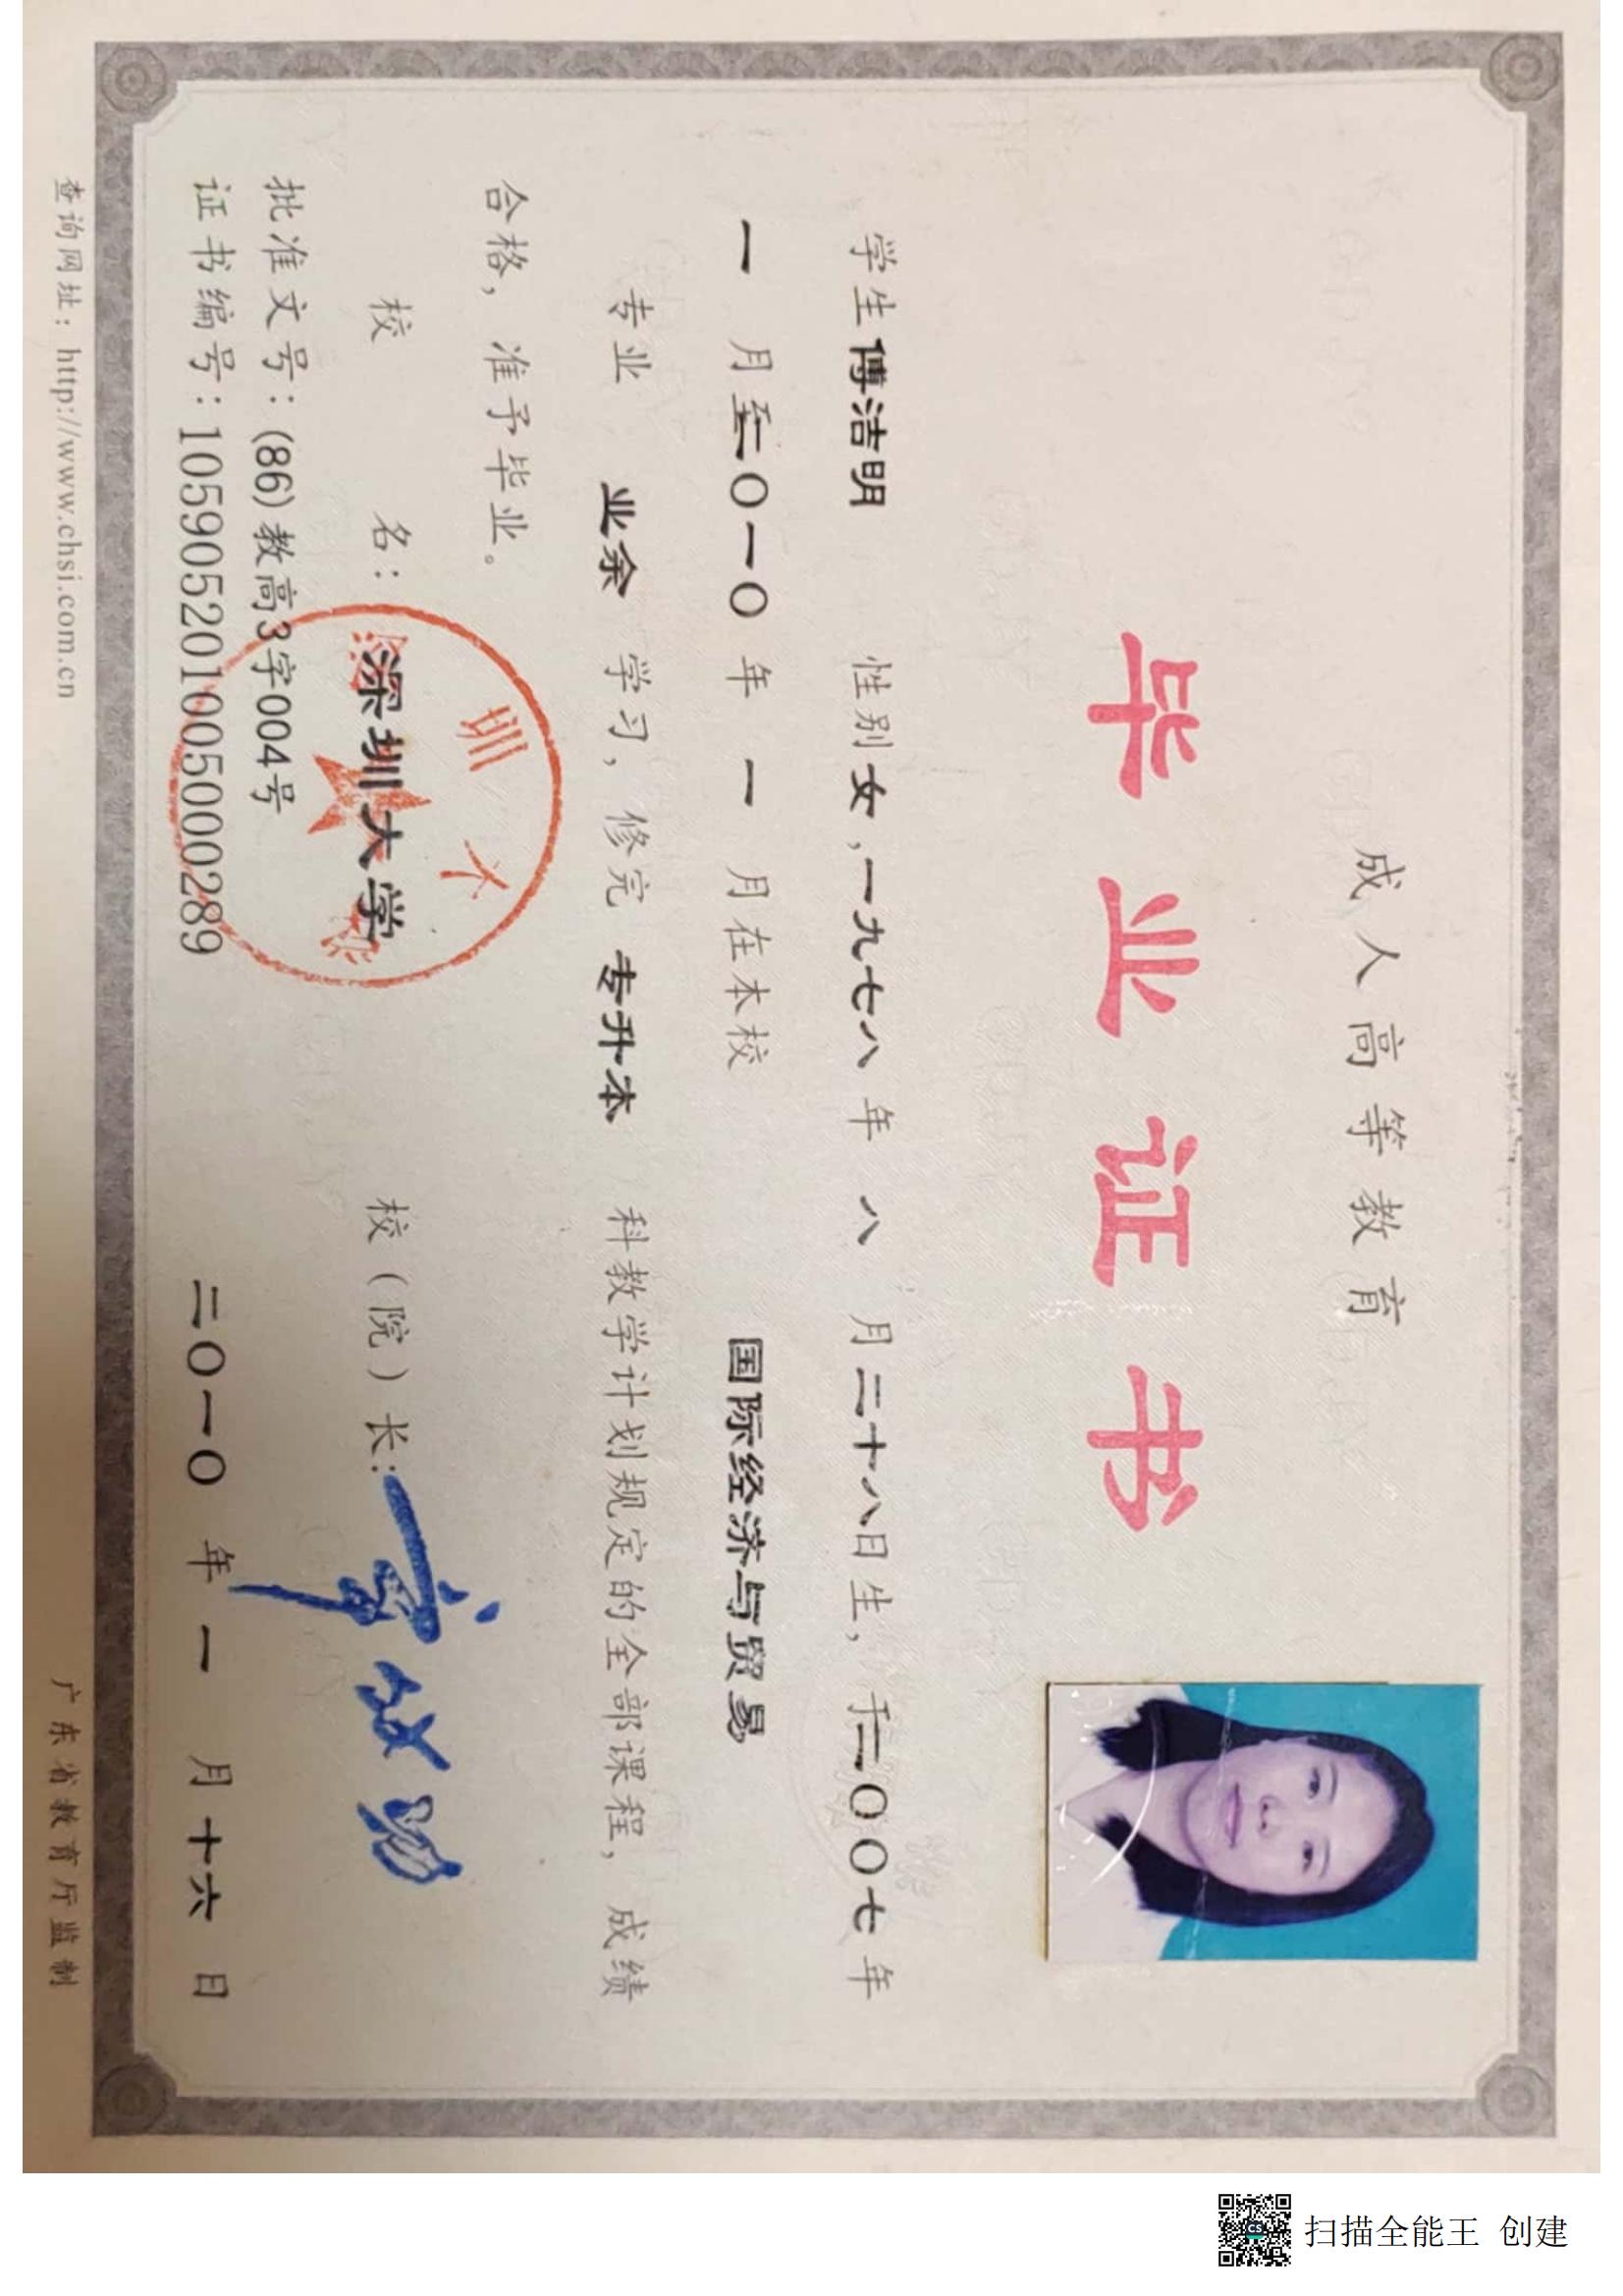 成人高等教育
毕业证书
学生 傅洁明 性别 女，一九七八 年 八 月 二十八 日生，于 二〇〇七 年
一 月至 二〇一〇 年 一 月在本校 国际经济与贸易
专业 业余 学习，修完 专升本 科教学计划规定的全部课程，成绩
合格，准予毕业。
校 名： 深圳大学 校（院）长：
批准文号：(86)教高3字004号
证书编号：105905201005000289 二〇一〇 年 一 月 十六 日
查询网址：http://www.chsi.com.cn 广东省教育厅监制
扫描全能王 创建